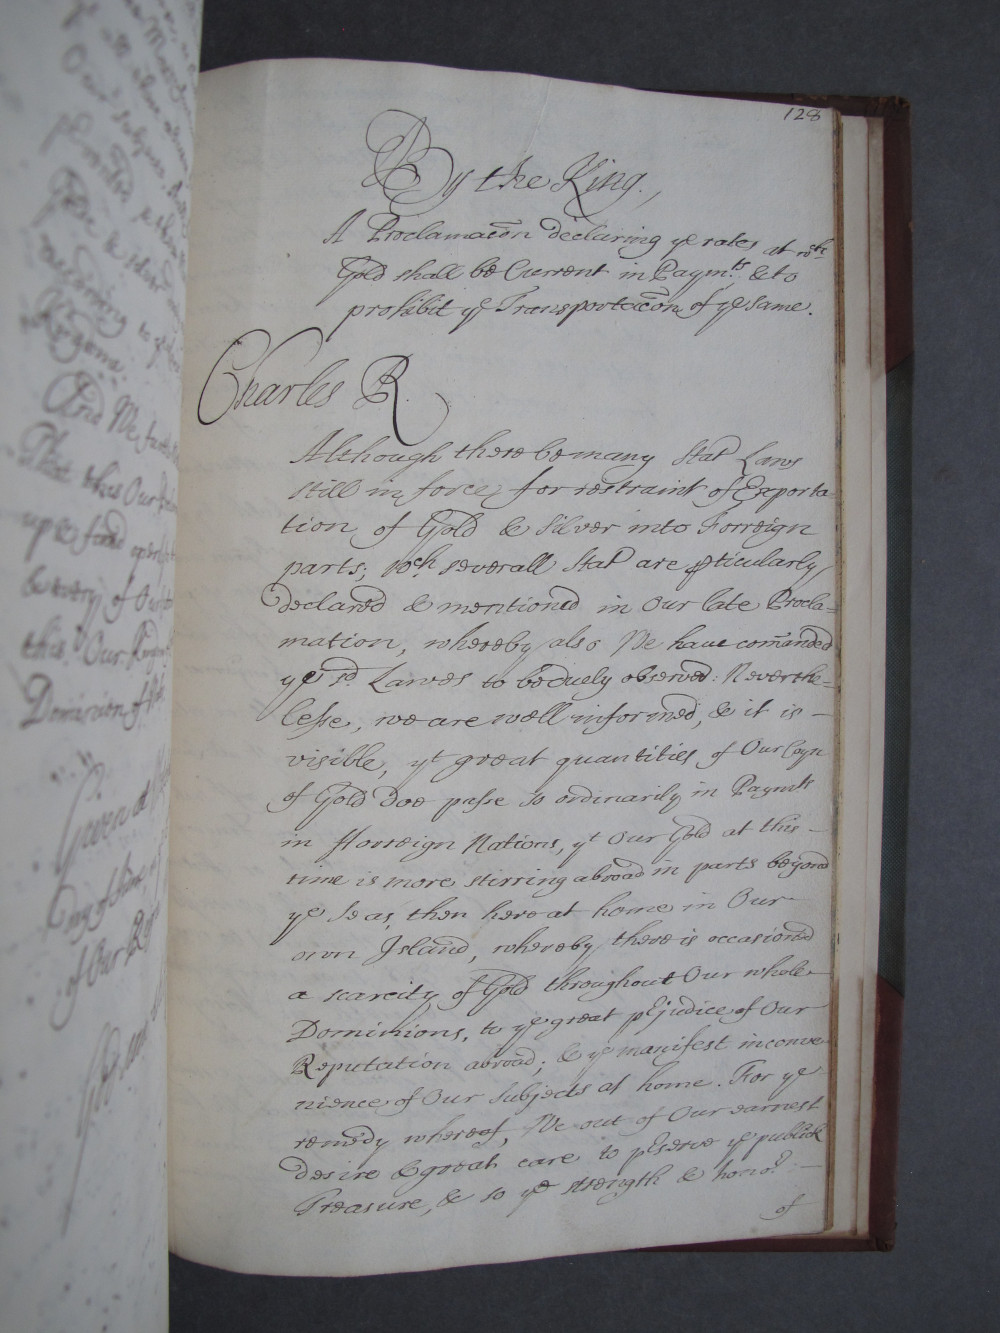 128
By the King.,
A Proclamacōn declaring ye rates at wch
Gold shall be Current in Paymts, & to
prohibit ye Transportacōn of ye same.
Charles R.
Although there be many Stat Laws
still in force, for restraint of Exporta-
tion of Gold & Silver into Forreign
parts; wch severall Stat are pticularly
declared & mentioned in Our late Procla=
mation, whereby also We have com̄anded
ye sd Lawes to be duely observed: Neverthe-
lesse, we are well informed, & it is -
visible, yt great quantities of Our Coyn
of Gold doe passe so ordinarily in Paymts
in fforreign Nations, yt Our Gold at this -
time is more stirring abroad in parts beyond
ye Seas, then here at home in Our -
own Island, whereby there is occasioned
a scarcity of Gold throughout Our whole
Dominions, to ye great pejudice of Our
Reputation abroad; & ye manifest inconve
nience of Our Subjects at home. For ye
remedy whereof, We out of Our earnest
desire & great care to pserve ye publick
Treasure, & so ye strength & honor -
of
And We
That this Our
up & fixed
& every of Our
this Our
Dominion of
Given at
day of
of Our